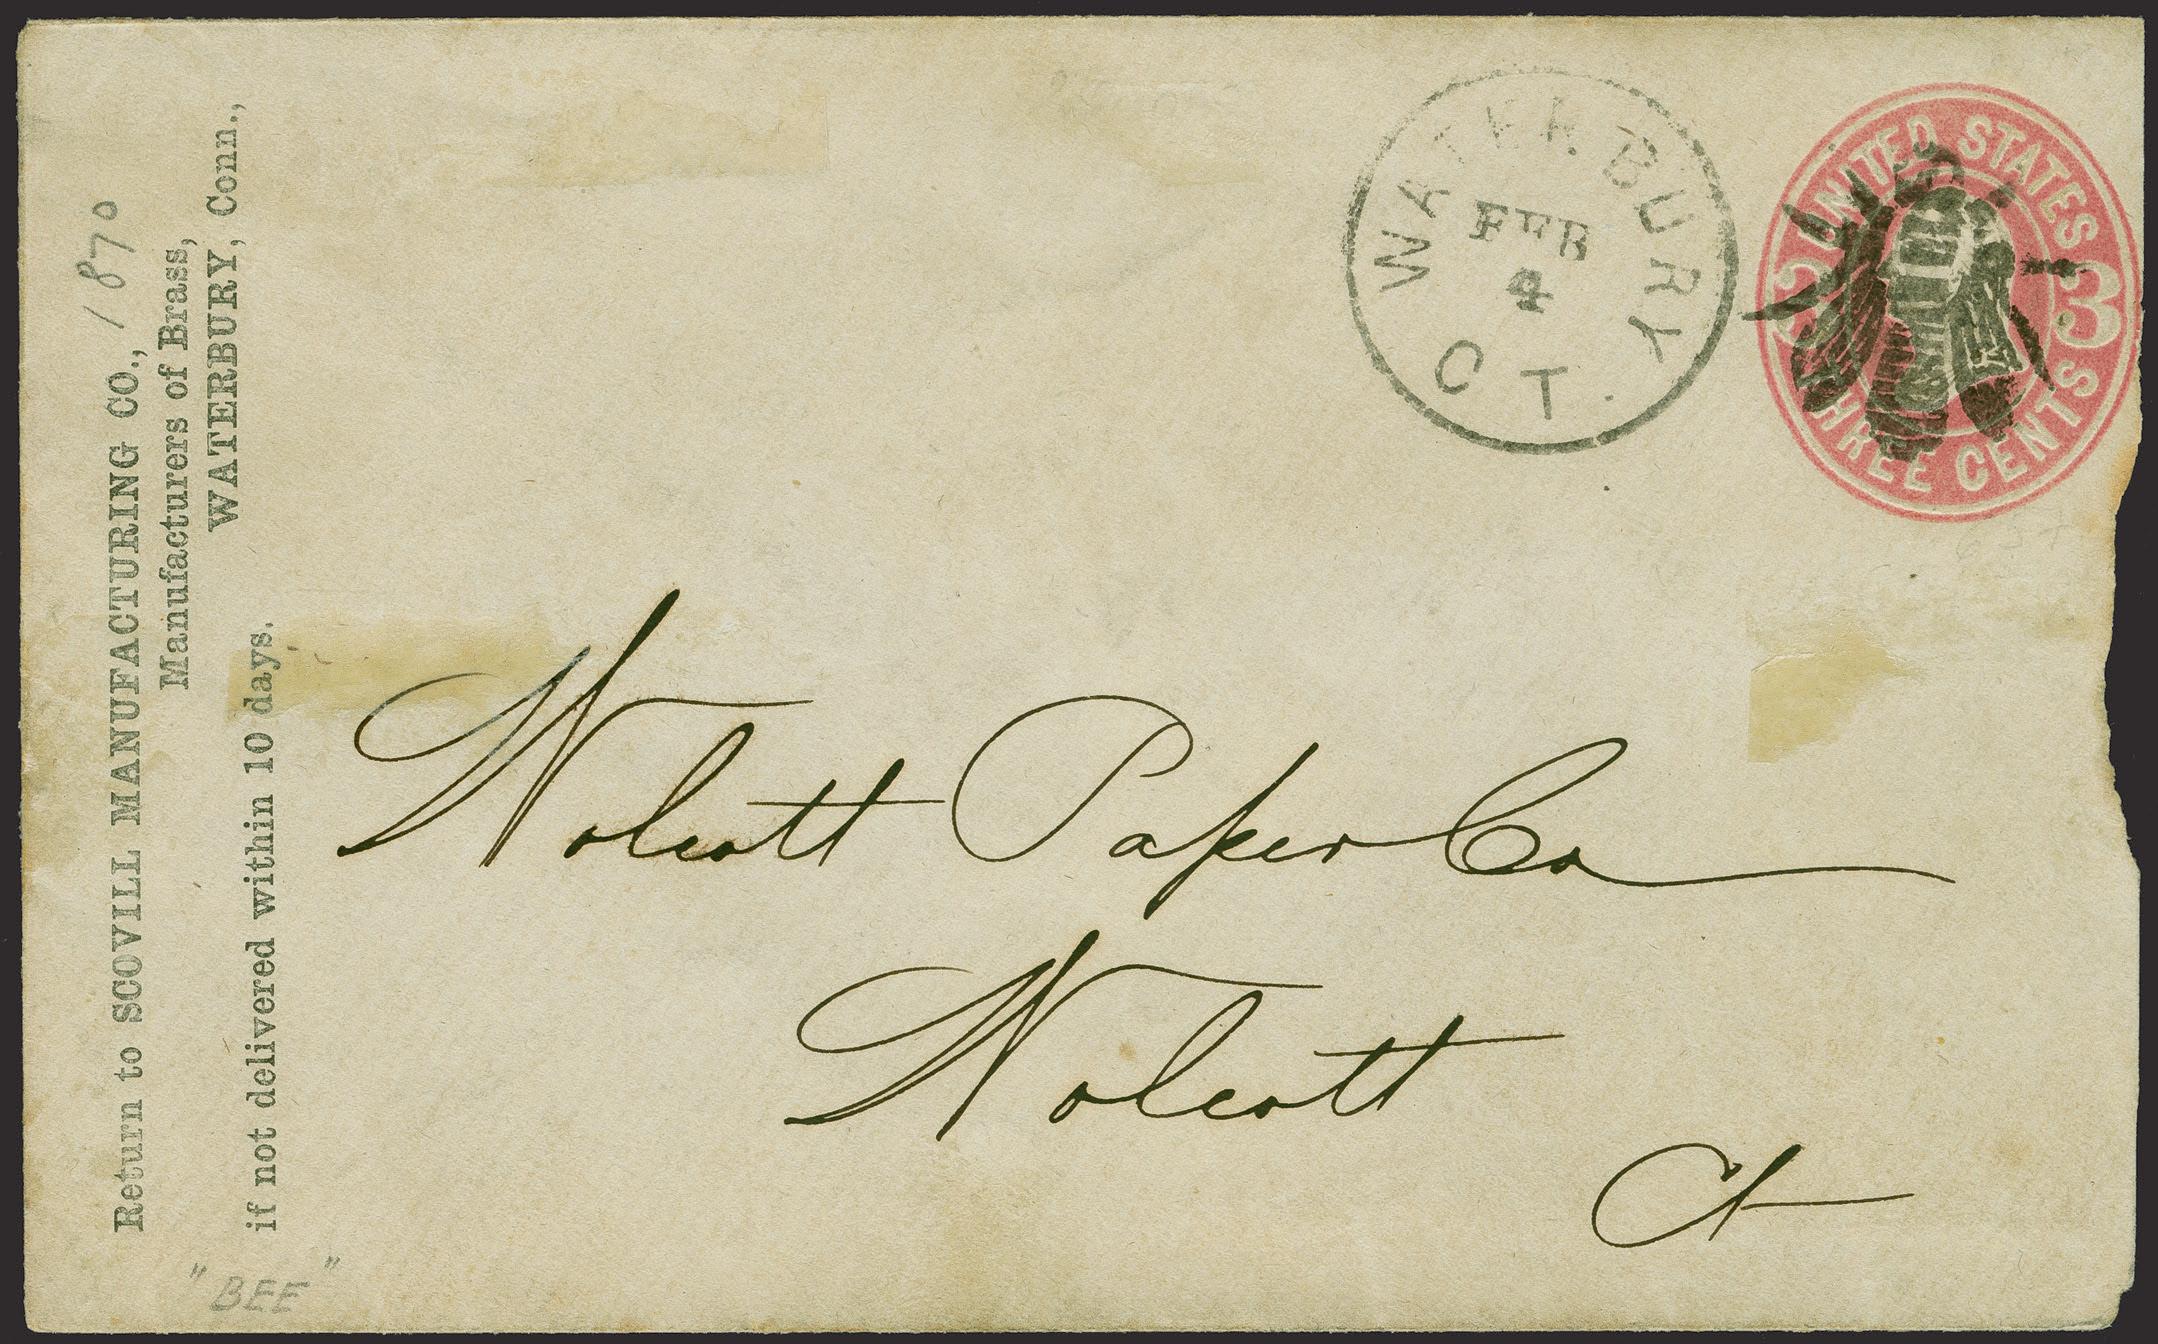 Return to SCOVILL MANUFACTURING CO.,
Manufacturers of Brass,
WATERBURY, Conn.,
if not delivered within 10 days.
1870
"BEE"
WATERBURY
FEB
4
CT.
UNITED STATES
3
THREE CENTS
Wolcott Paper Co
Wolcott
Ct